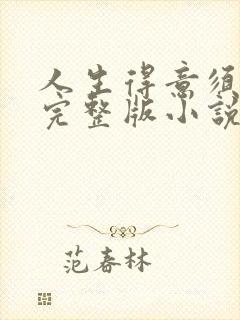 人生得意须
完整版小説
范春林